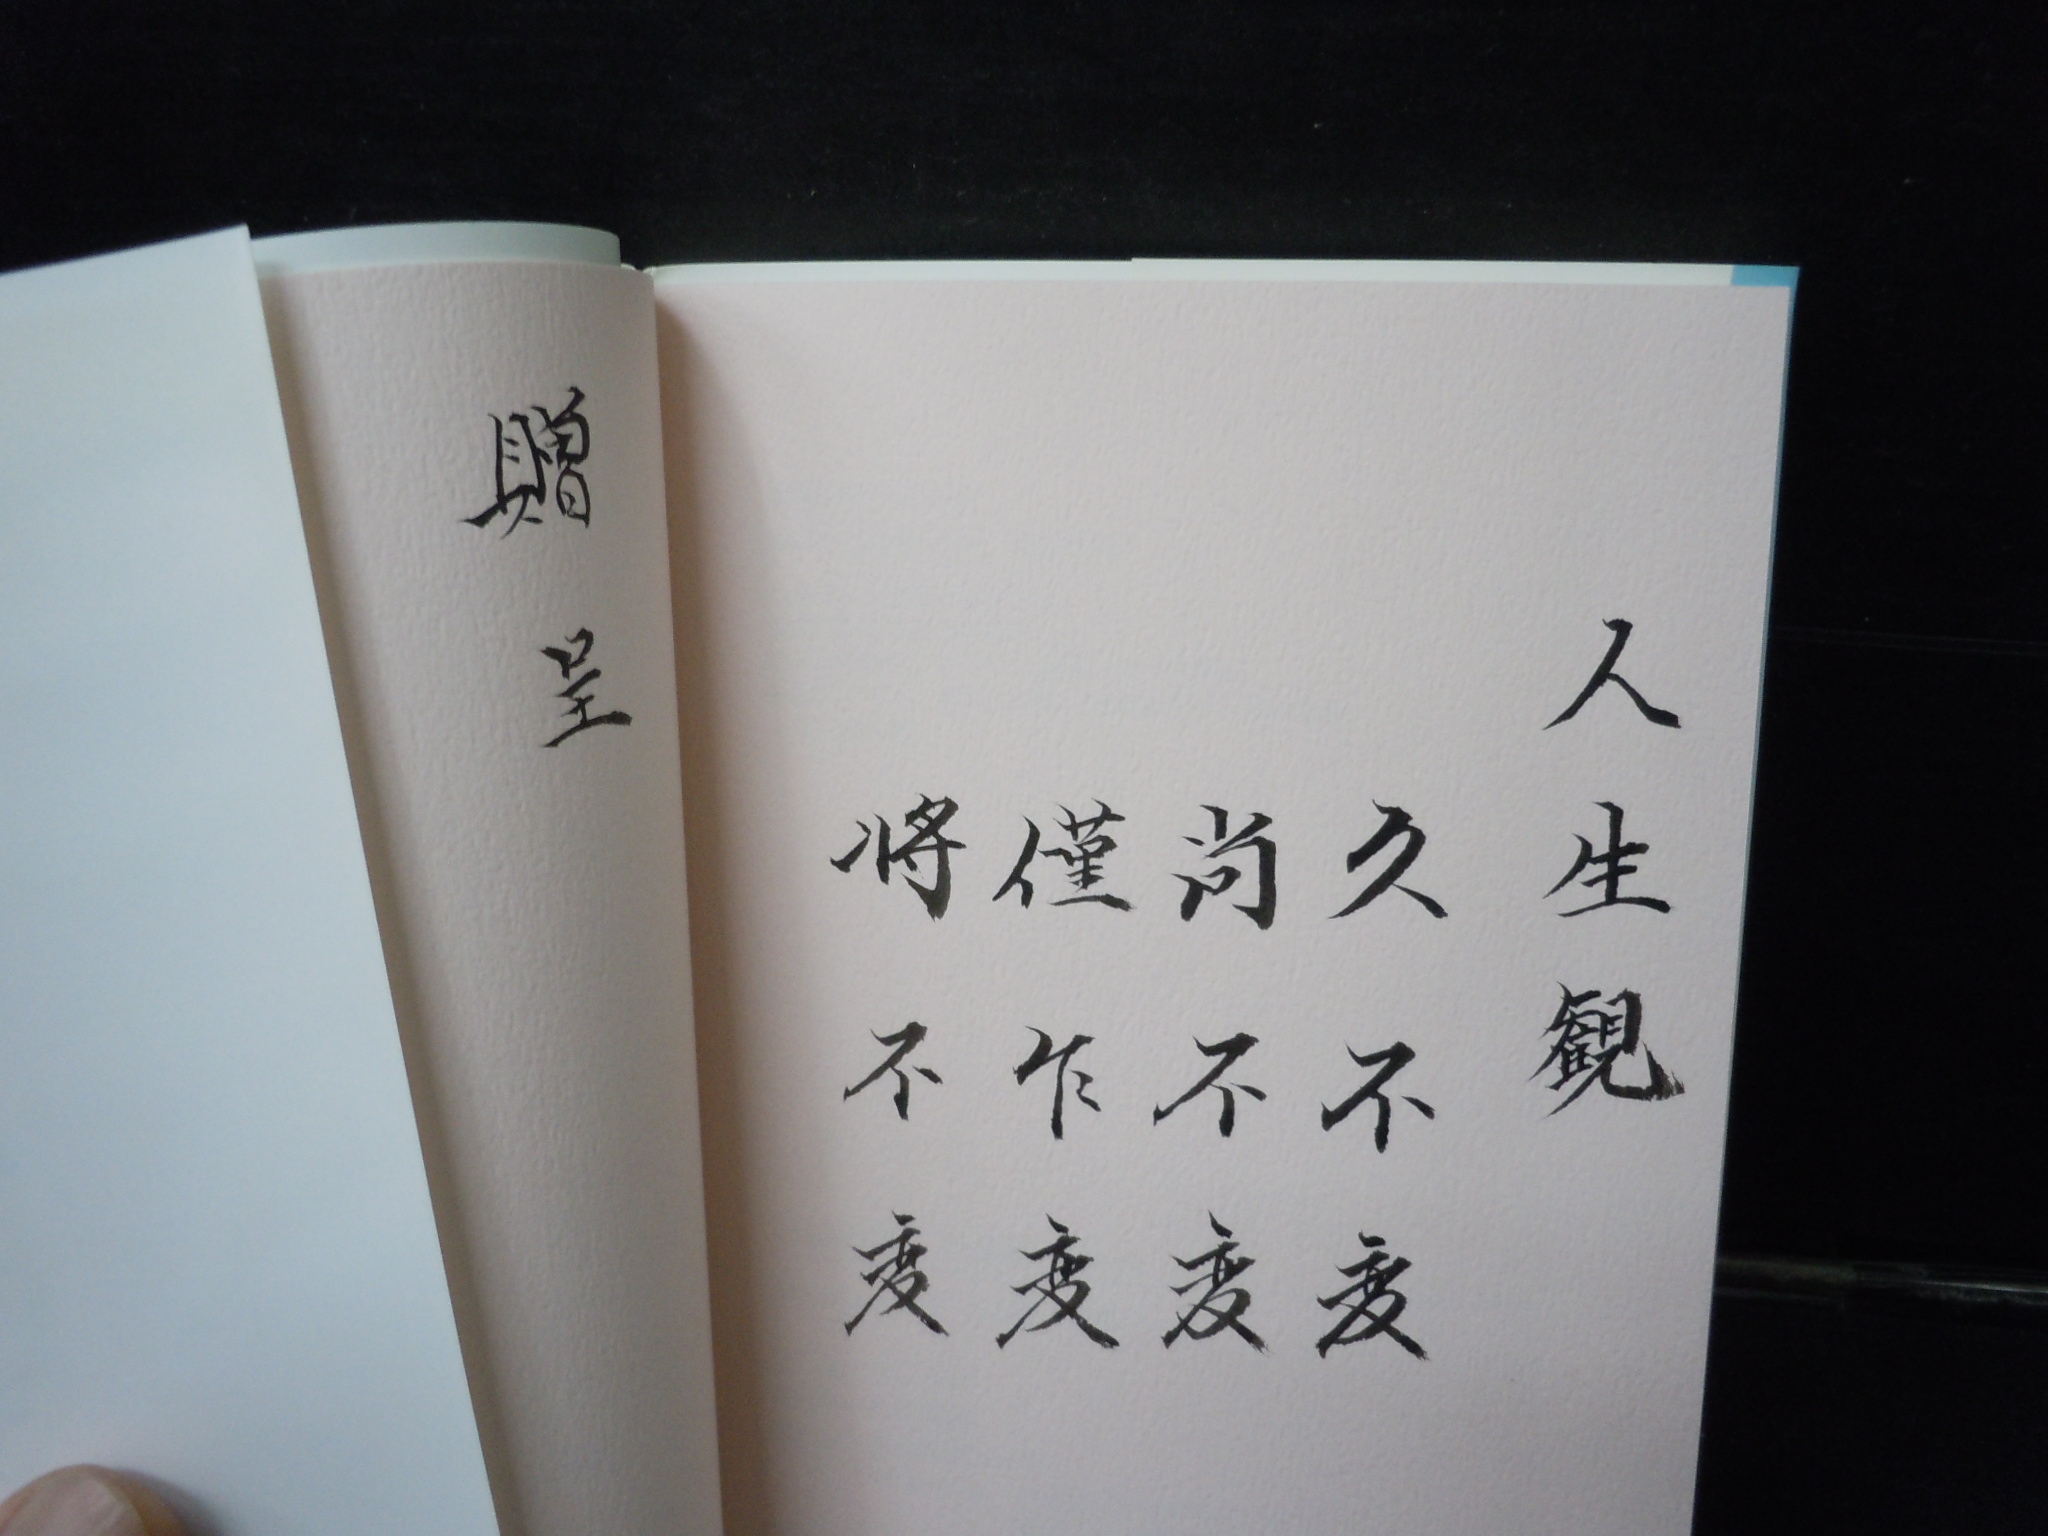 人生観
久不変
尚不変
僅乍変
将不変
贈呈